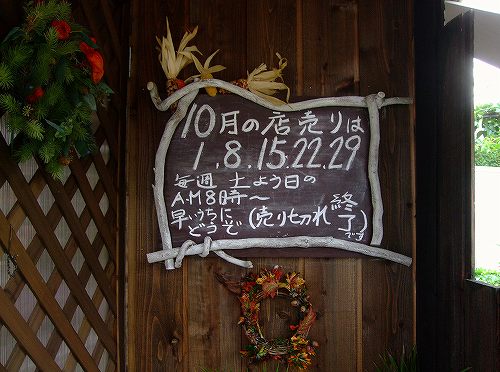 10月の店売りは
1,8.15.22.29
毎週 土よう日の
A.M8時〜
早いうちに
どうぞ
(売り切れ
終了)
です